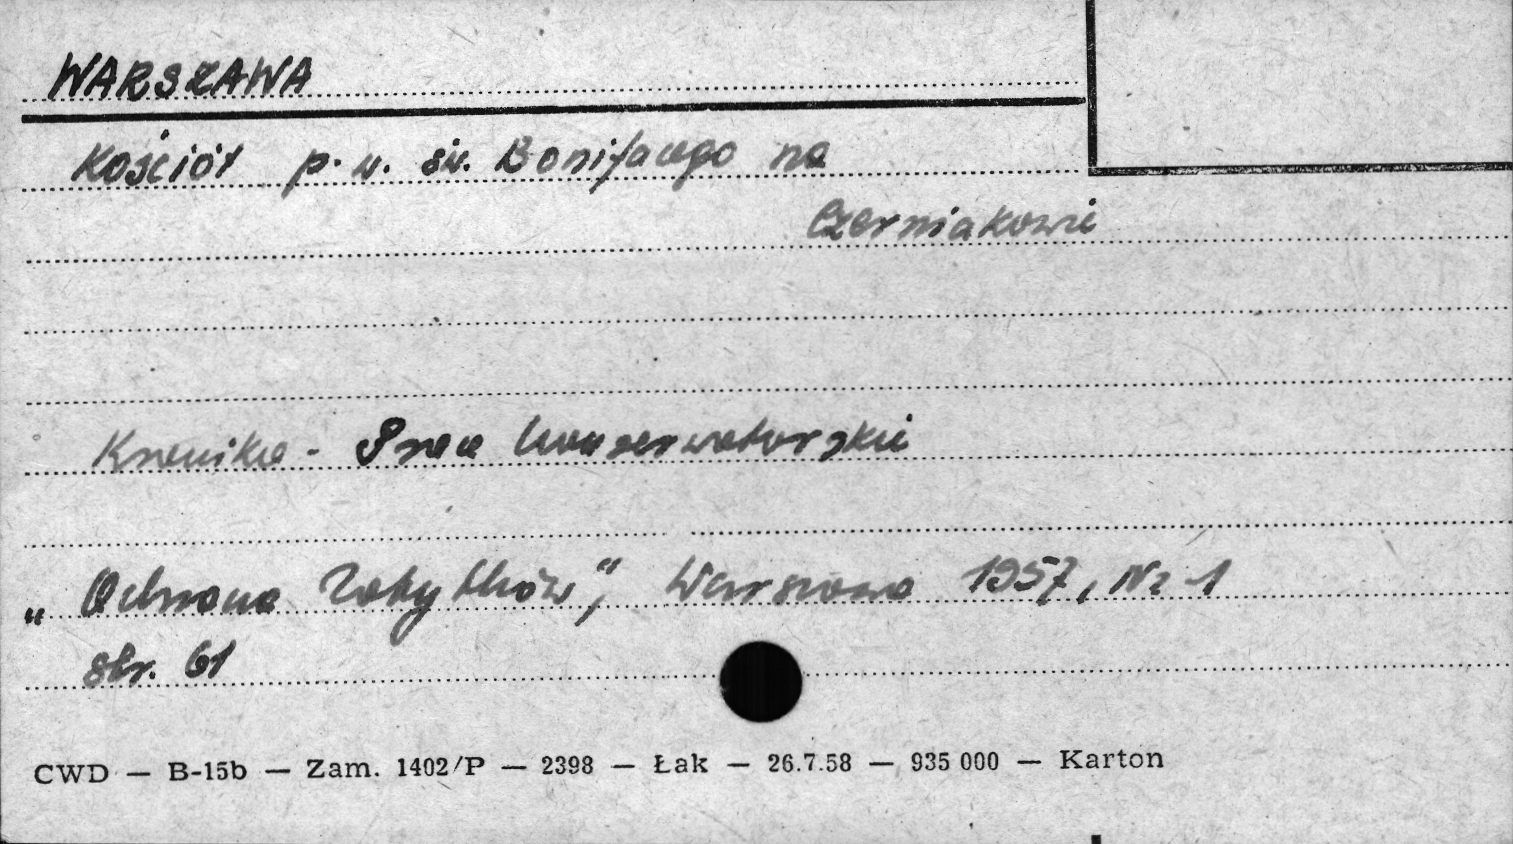 WARSZAWA
Kościół p.w. św. Bonifacego na
Czerniakowie
Kronika - Prace konserwatorskie
„Ochrona Zabytków”, Warszawa 1957, Nr 1
str. 61
CWD — B-15b — Zam. 1402/P — 2398 — Łak — 26.7.58 — 935 000 — Karton